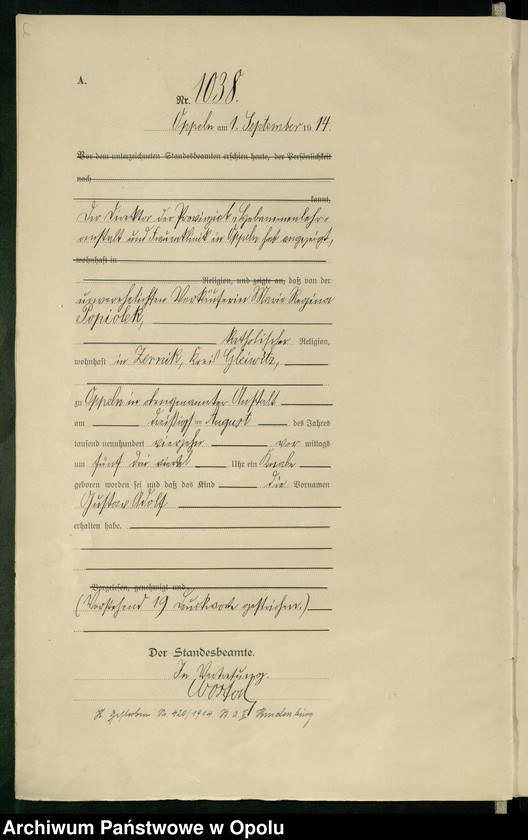 A.
Nr. 1038.
Oppeln am 1. September 1914.
Vor dem unterzeichneten Standesbeamten erschien heute, der Persönlichkeit
nach
kannt,
Der Direktor der Provinzial-Hebammenlehr-
anstalt und Frauenklinik in Oppeln hat angezeigt,
wohnhaft in
Religion, und zeigte an, daß von der
unverehelichten Verkäuferin Marie Regina
Popiolek,
katholischer Religion,
wohnhaft in Zernik, Kreis Gleiwitz,
zu Oppeln in obengenannter Anstalt
am dreißigsten August des Jahres
tausend neunhundert vierzehn vor mittags
um fünf drei viertel Uhr ein Knabe
geboren worden sei und daß das Kind die Vornamen
Gustav Adolf
erhalten habe.
Vorgelesen, genehmigt und
(Vorstehend 19 Druckworte gestrichen.)
Der Standesbeamte.
In Vertretung.
Gestorben Nr. 420/19 Hindenburg
Archiwum Państwowe w Opolu